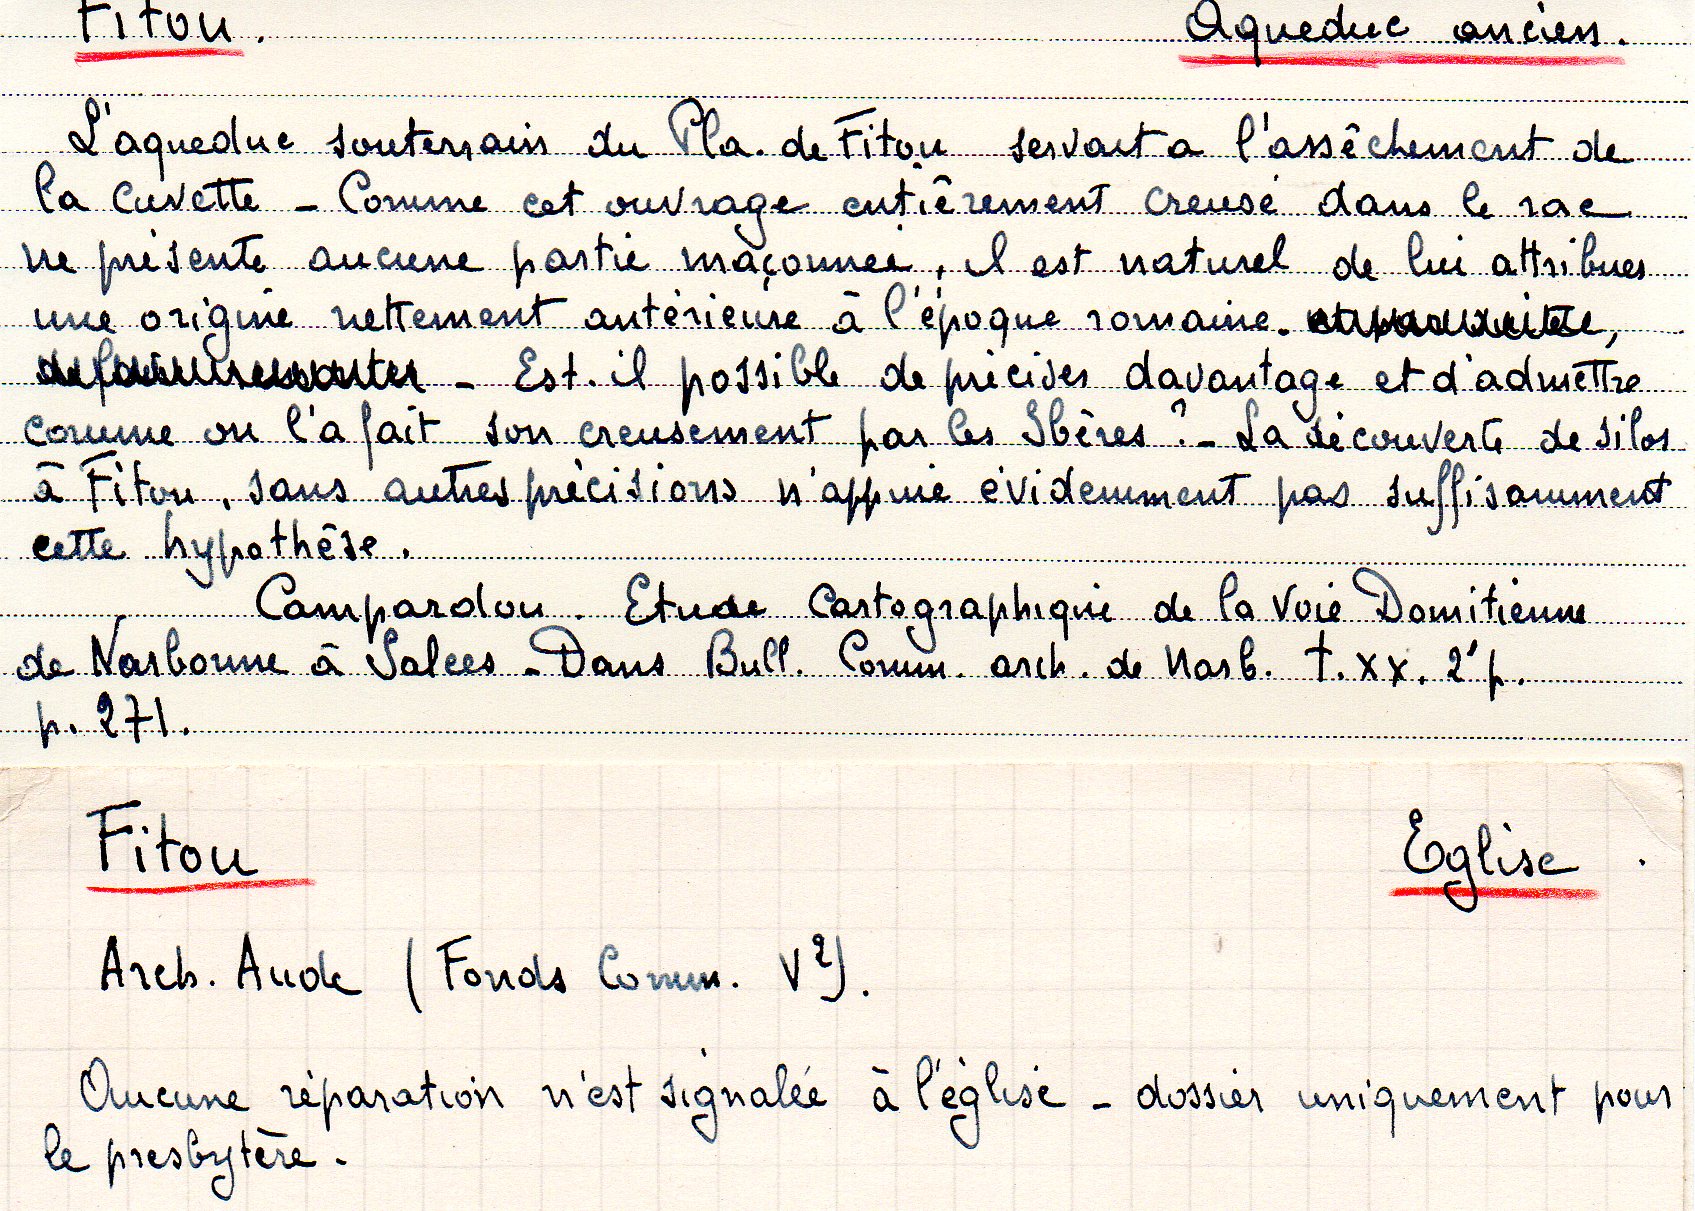 Fitou. Aqueduc ancien.
L'aqueduc souterrain du Pla. de Fitou servait a l'assèchement de
la cuvette - Comme cet ouvrage entièrement creusé dans le roc
ne présente aucune partie maçonnée, il est naturel de lui attribuer
une origine nettement antérieure à l'époque romaine.
- Est-il possible de préciser davantage et d'admettre
comme on l'a fait son creusement par les Ibères ? - La découverte de silos
à Fitou, sans autres précisions n'appuie évidemment pas suffisamment
cette hypothèse.
Campardou. Etude Cartographique de la Voie Domitienne
de Narbonne à Salces - Dans Bull. Comm. arch. de Narb. t. XX. 2e p.
p. 271.
Fitou Eglise.
Arch. Aude (Fonds Comm. V2).
Aucune réparation n'est signalée à l'église - dossier uniquement pour
le presbytère.